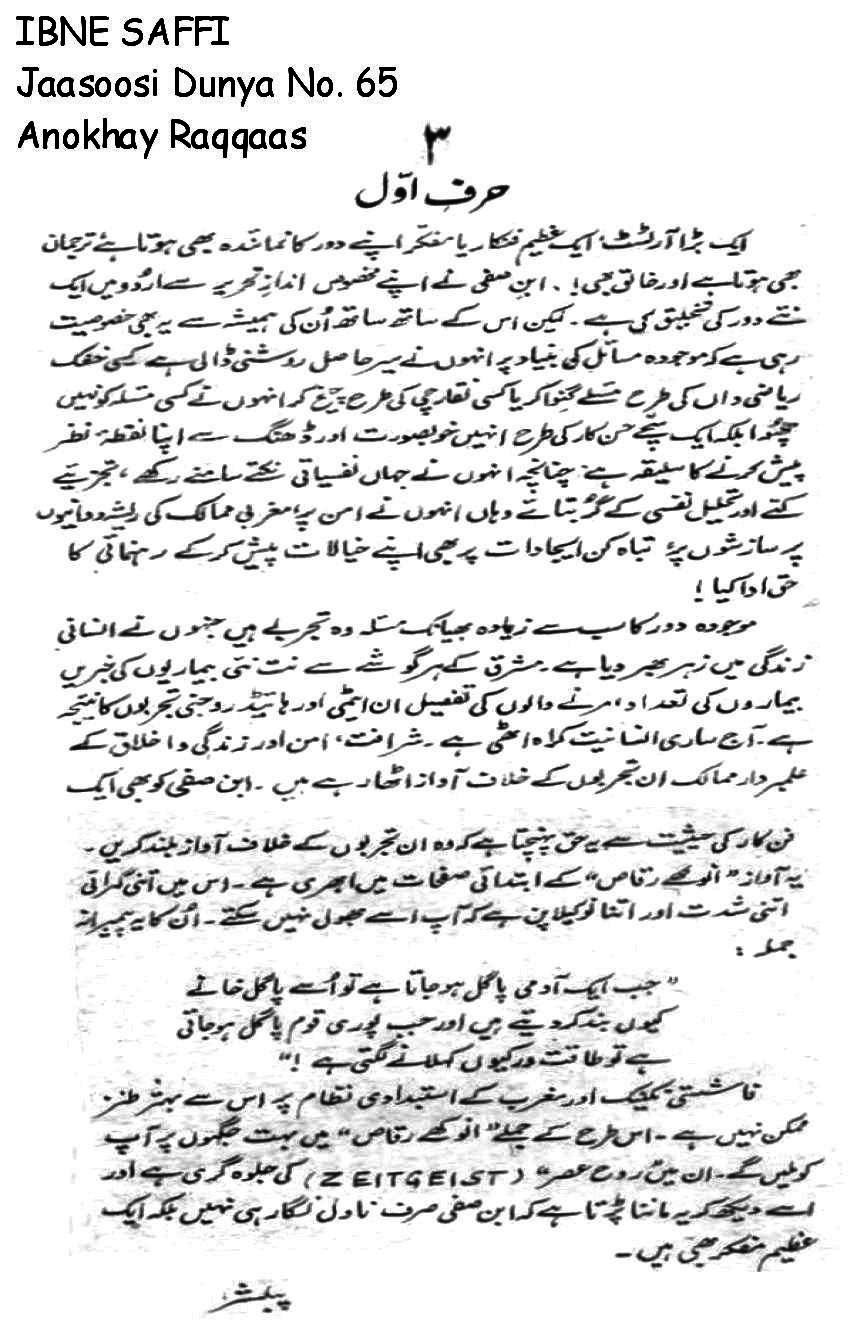 IBNE SAFFI
Jaasoosi Dunya No. 65
Anokhay Raqqaas
۳
حرفِ اوّل
ایک بڑا آرٹسٹ، ایک عظیم فنکار یا مفکر اپنے دور کا نمائندہ بھی ہوتا ہے ترجمان
بھی ہوتا ہے اور خالق بھی!۔ ابنِ صفی نے اپنے مخصوص اندازِ تحریر سے اردو میں ایک
نئے دور کی تخلیق کی ہے۔ لیکن اس کے ساتھ ساتھ اُن کی ہمیشہ سے یہ بھی خصوصیت
رہی ہے کہ موجودہ مسائل کی بنیاد پر انہوں نے سیر حاصل روشنی ڈالی ہے کسی خشک
ریاضی داں کی طرح مسئلے گِنوا کر یا کسی نقارچی کی طرح چیخ کر انہوں نے کسی مسئلہ کو نہیں
چھیڑا بلکہ ایک سچے حسن کار کی طرح انہیں خوبصورت اور ڈھنگ سے اپنا نقطۂ نظر
پیش کرنے کا سلیقہ ہے: چنانچہ انہوں نے جہاں نفسیاتی نکتے سامنے رکھے، تجزیئے
کئے اور تحلیل نفسی کے گُر بتائے وہاں انہوں نے امن پر! مغربی ممالک کی ریشہ دوانیوں
پر سازشوں پر! تباہ کن ایجادات پر بھی اپنے خیالات پیش کر کے رہنمائی کا
حق ادا کیا!
موجودہ دور کا سب سے زیادہ بھیانک مسئلہ وہ تجربے ہیں جنہوں نے انسانی
زندگی میں زہر بھر دیا ہے۔ مشرق کے ہر گوشے سے نت نئی بیماریوں کی خبریں
بیماروں کی تعداد، مرنے والوں کی تفصیل ان ایٹمی اور ہائیڈروجنی تجربوں کا نتیجہ
ہے۔ آج ساری انسانیت کراہ اٹھی ہے۔ شرافت، امن اور زندگی و اخلاق کے
علمبردار ممالک ان تجربوں کے خلاف آواز اٹھا رہے ہیں۔ ابن صفی کو بھی ایک
فن کار کی حیثیت سے یہ حق پہنچتا ہے کہ وہ ان تجربوں کے خلاف آواز بلند کریں۔
یہ آواز "انوکھے رقاص" کے ابتدائی صفحات میں ابھری ہے۔ اس میں اتنی گہرائی
اتنی شدت اور اتنا نوکیلا پن ہے کہ آپ اسے بھول نہیں سکتے۔ اُن کا یہ پیمبرانہ
جملہ:
"جب ایک آدمی پاگل ہو جاتا ہے تو اُسے پاگل خانے
کیوں بند کر دیتے ہیں اور جب پوری قوم پاگل ہو جاتی
ہے تو طاقت ور کیوں کہلانے لگتی ہے!"
فاشستی تکنیک اور مغرب کے استبدادی نظام پر اس سے بہتر طنز
ممکن نہیں ہے۔ اس طرح کے جملے "انوکھے رقاص" میں بہت جگہوں پر آپ
کو ملیں گے۔ ان میں "روحِ عصر" (ZEITGEIST) کی جلوہ گری ہے اور
اسے دیکھ کر یہ ماننا پڑتا ہے کہ ابن صفی صرف ناول نگار ہی نہیں بلکہ ایک
عظیم مفکر بھی ہیں۔
پبلشر